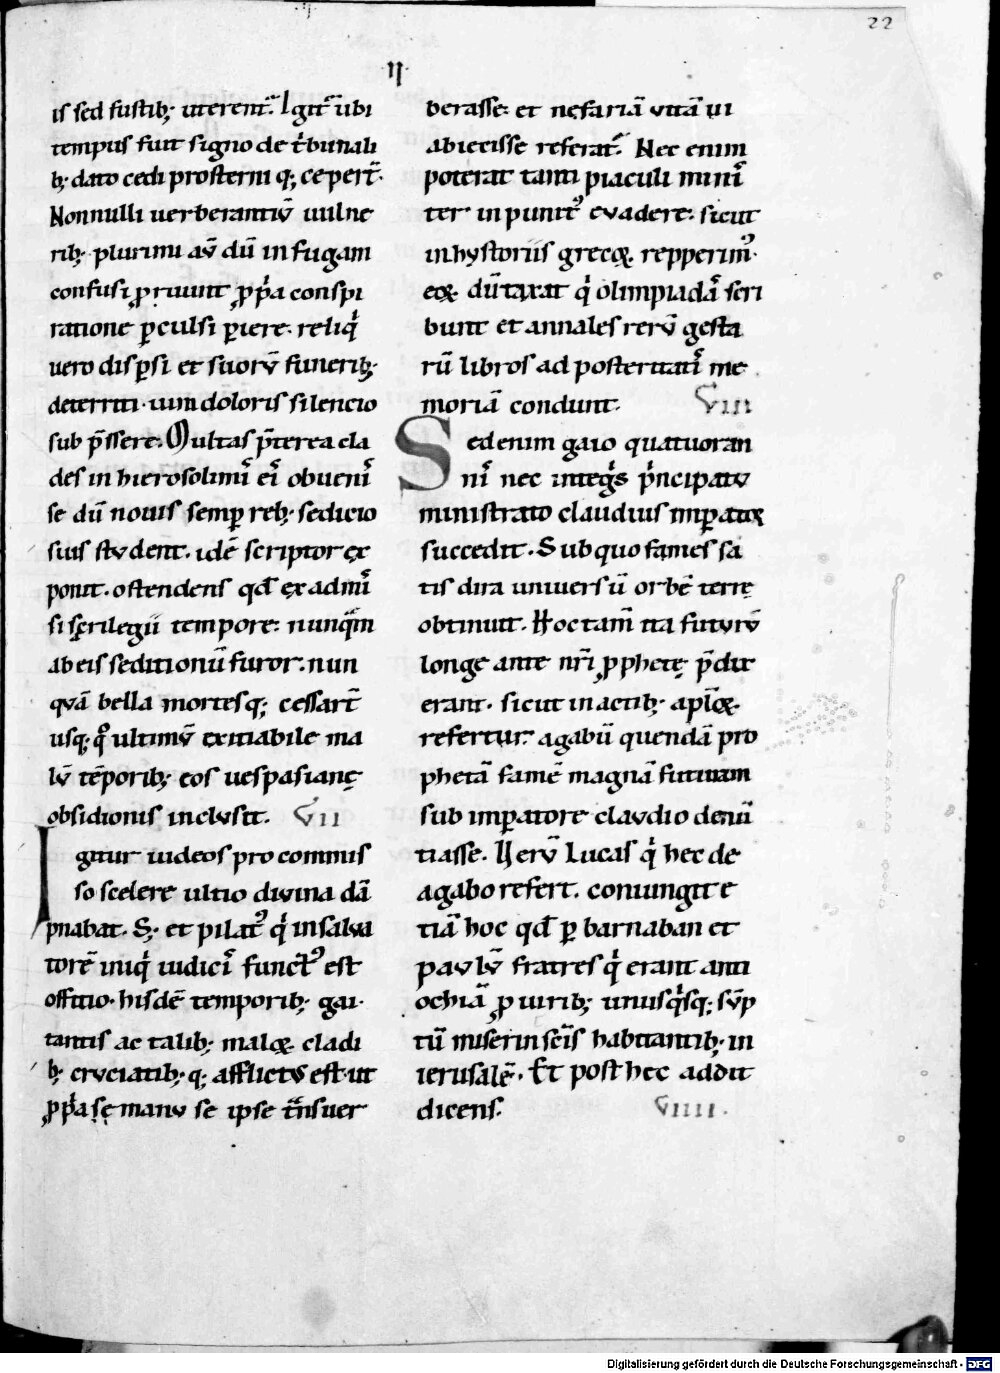 22
·II·
is sed fustib; uterent᷑. Igit᷑ ubi
tempus fuit signo de t̍bunali
b; dato cedi prosterni q; cepert̄.
Nonnulli uerberantiū uulne
rib; plurimi aū dū in fugam
confusi ꝓruunt ꝓp̍a conspi
ratione ꝑculsi ꝑiere. reliq̍
uero disꝑsi et suorū funerib;
deterriti · uim doloris silencio
sub p̄ssere. Multas p̄terea cla
des in hierosolimī eī obuenī
se dū nouis semꝑ reb; sedicio
sius stvdent. idē scriptor ex
ponit. ostendens qd̄ ex admī
si sc̄rilegii tempore: nunq̄m
ab eis seditionū furor. nun
quā bella mortesq; cessart̄
usq; qͦ ultimū exitiabile ma
lū tēporib; eos uespasianę
obsidionis inclvsit. VII
Igitur iudeos pro commis
so scelere ultio divina dā
pnabat. S; et pilatꝰ q̍ in salua
torē iniq̍ iudicī functꝰ est
offitio. hisdē temporib; gai·
tantis ac talib; maloꝝ cladi
b; crvciatib; q; afflictvs est. ut
ꝓp̍a sę manv se ipse t̄nsuer
berasse: et nefariā vitā ui
abiecisse referat᷑. Nec enim
poterat tanti piaculi minī
ter inpunitꝰ evadere. sicut
in hystoriis grecoꝝ repperimꝰ·
eoꝝ dūtaxat q̍ olimpiadā scri
bunt et annales rerū gesta
rū libros ad posteritatī me
moriā condunt. VIII
Sed enim gaio quatuor an
nī nec integ̍s p̍ncipatv
ministrato claudius imꝑator
succedit. Sub quo fames sa
tis dira uniuersū orbē terrę
obtinuit. Hoc tam̄ ita futurū
longe ante nr̄i ꝓphetę p̄dix
erant. sicut in actib; apl̄oꝝ.
refertur. agabū quendā pro
phetā famē magnā futuram
sub imꝑatore clavdio denū
tiasse. Uerū Lucas q̍ hec de
agabo refert. coniungit e
tiā hoc qd̄ ꝑ barnaban et
pavlū fratres q̍ erant anti
ochiā ꝓ uirib; unusq̍sq; sūp
tū miserin sc̄is habitantib; in
ierusalē. Et post hec addit
dicens. VIIII.
Digitalisierung gefördert durch die Deutsche Forschungsgemeinschaft - DFG